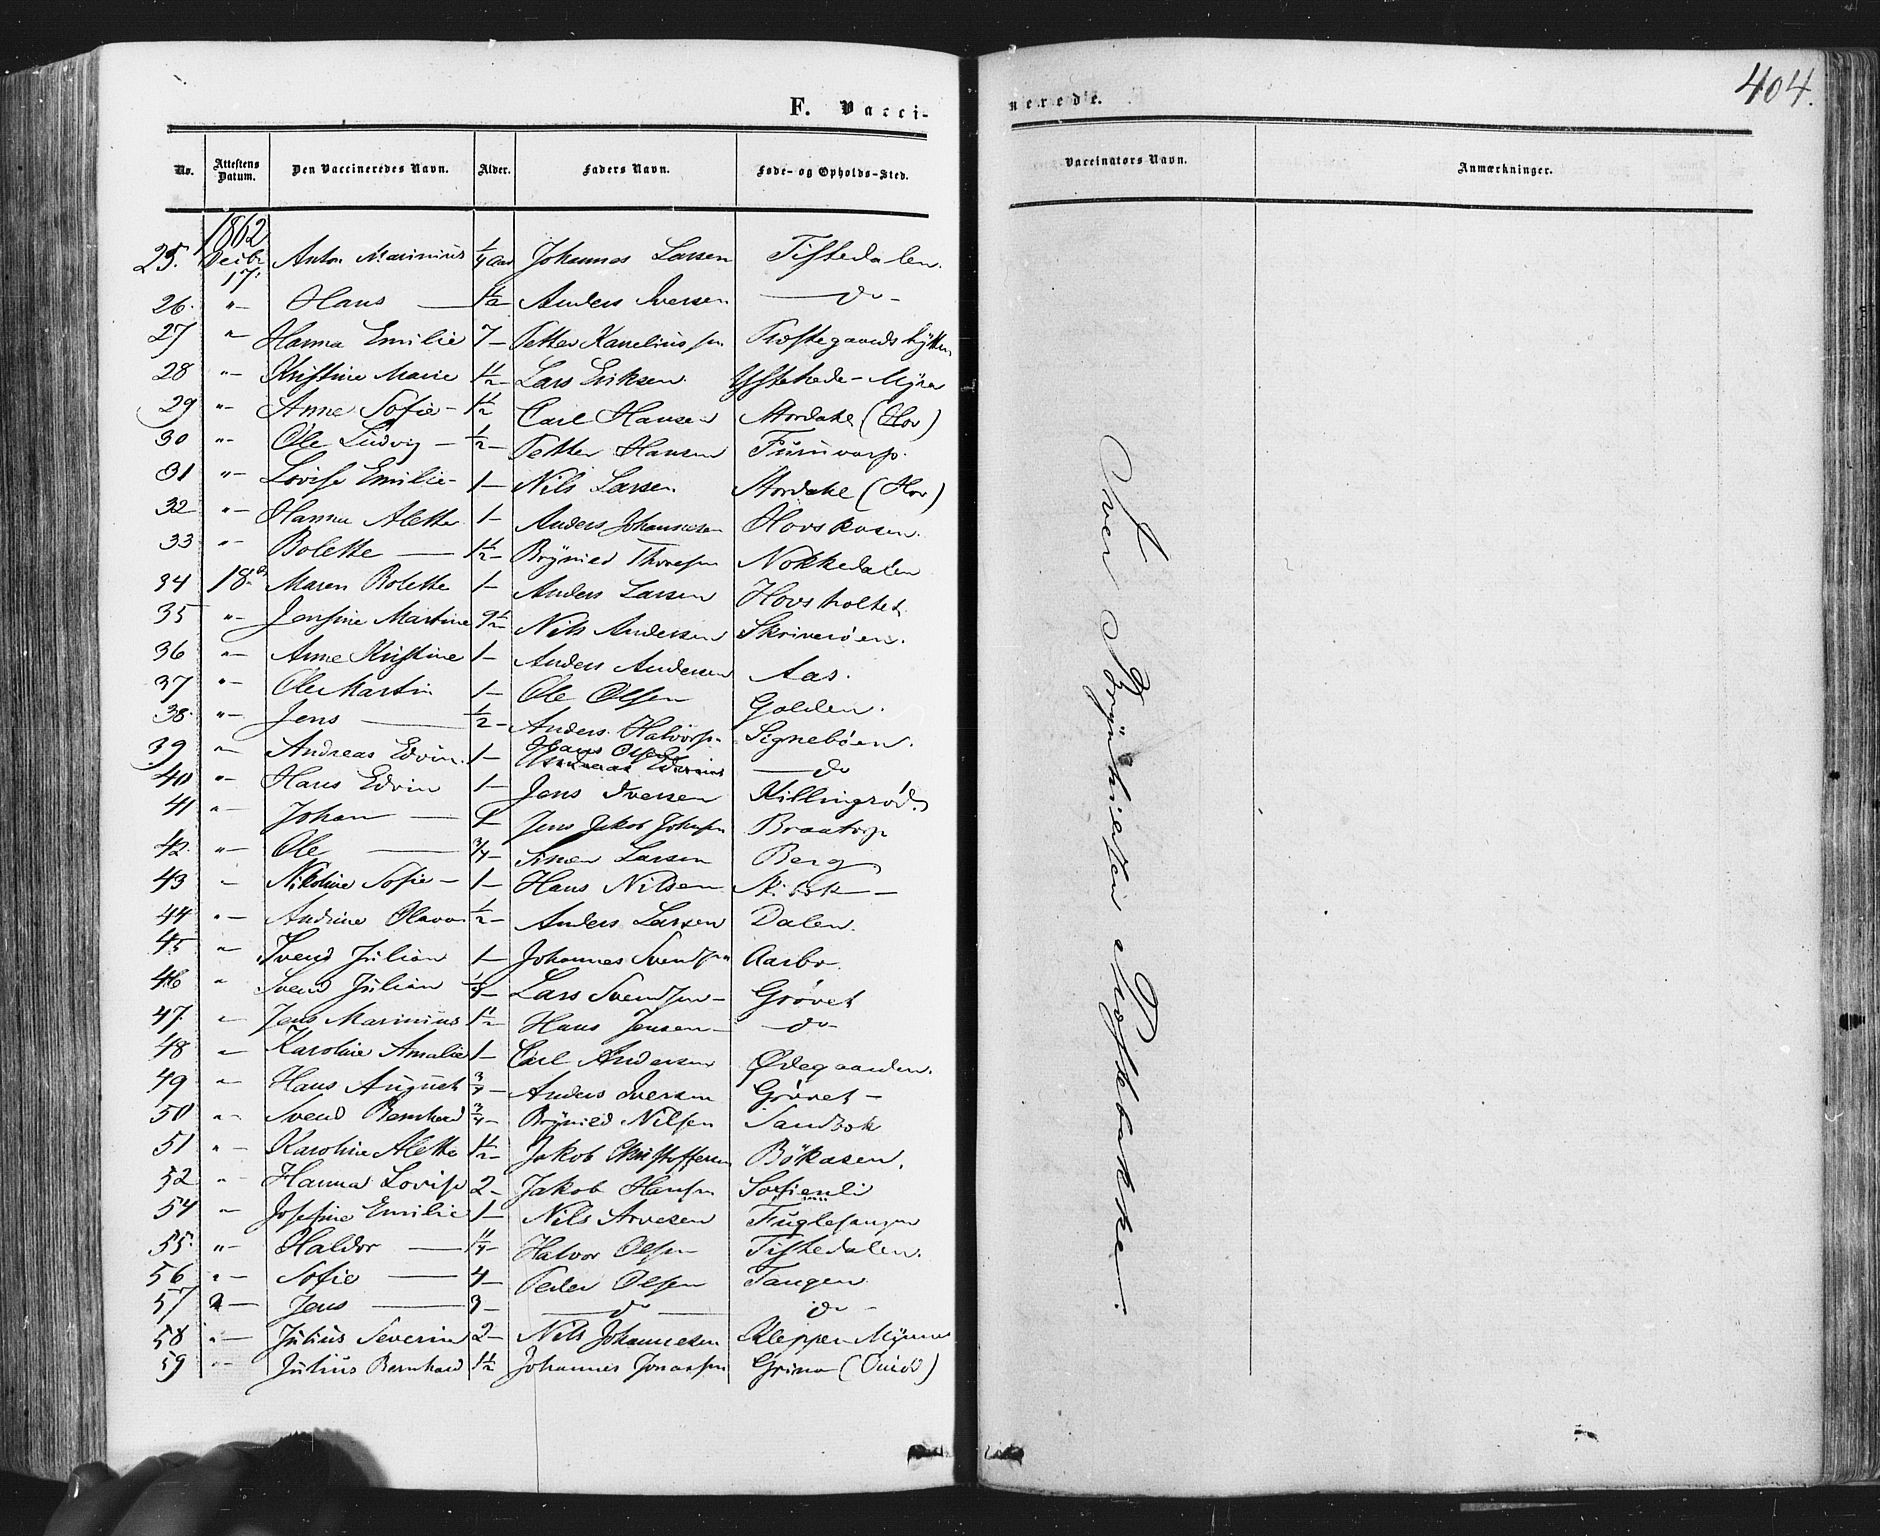 F. Vacci-
No. Attestens Datum. Den Vaccineredes Navn. Alder. Faders Navn. Føde- og Opholds-Sted.
1862
25. Decbr 17. Anton Marinius 1/4 Aar Johannes Larsen Tistedalen.
26. "- Hans — 1 1/2 - Anders Iversen — do -
27 " Hanna Emilie 7 - Petter Kornelius sen
28 "- Kristine Marie 1 1/2 - Lars Eriksen. Ystehede-Myra
29 "- Anne Sofie - 1 1/2 Carl Hansen Stordahl (Hov)
30 "- Ole Ludvig - 1/2 - Petter Hansen
31 "- Lovise Emilie - 1 - Nils Larsen Stordahl (Hov)
32 - "- Hanna Alette 1 - Anders Johannesen Hovskasen.
33 "- Bolette — 1 1/2 - Brynild Thoresen Nokkedalen
34 18 Maren Bolette 1 - Anders Larsen Hovsholtet
35 "- Jensine Martine 9 1/2 - Nils Andersen Skriverøen.
36 "- Anne Kristine 1 - Anders Andersen Aas.
37 "- Ole Martin 1 - Ole Olsen Golden.
38. "- Jens — 1/2 - Anders Halvors. Signebøen.
39 " Andreas Edvin. 1 - Hans Olsen — do
40 "- Hans Edvin 1 - Jens Iversen Killingrød.
41 "- Johan — 1 - Jens Jakob Johnsen Braatorp
42. "- Ole — 3/4 - Simen Larsen Berg
43 - Nikoline Sofie - 1 - Hans Nilsen -
44 "- Andrine Olava 1/2 - Anders Larsen Dalen.
45 " Svend Julian 1 - Johannes Svendsen Aarbo.
46 " Svend Julian 1/4 - Lars Svendsen - Grøvet
47. - Jens Marinius 1 1/2 - Hans Jensen - - do -
48 " Karoline Amalie 1 - Carl Andersen Ødegaarden.
49 " Hans August 3/4 - Anders Iversen Grøvet -
50 " Svend Bernhard 3/4 - Brynild Nilsen Sandbæk
51 "- Karoline Alette 1 1/2 - Jakob Christoffersen Bøkasen.
52 "- Hanna Lovise 2 - Jakob Hansen Sofienli
54 " Josefine Emilie 1 - Nils Arvesen Fuglesangen
55. "- Haldor — 1 1/4 - Halvor Olsen Tistedalen.
56 "- Sofie — 4 - Peder Olsen Tangen
57 - Jens — 3 - — do — do -
58 "- Julius Severin 2 - Nils Johannesen
59 "- Julius Bernhard 1 1/2 Johannes Jonassen Grimo
nerede. 404.
Vaccinators Navn. Anmærkninger.
Iver Brynhildsen Røstebakke.